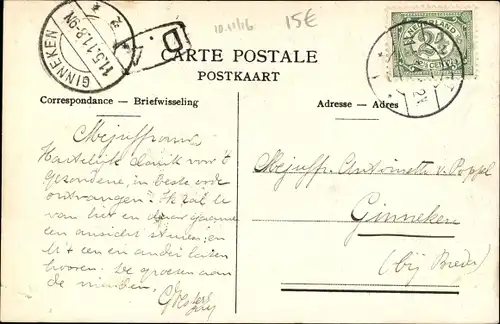 10.11/16
15€
GINNEKEN
11.5.11.8-9N
D.
CARTE POSTALE
POSTKAART
NEDERLAND
2½
CENT
Correspondance — Briefwisseling
Adresse — Adres
Mejuffrouw.
Hartelijk dank voor 't
gezondene, in beste orde
ontvangen. Ik zal U
van hier en daar gaarne
een ansicht sturen, en
U 't een en ander laten
hooren. De groeten aan
de vrienden.
Mejuffr. Antoinette v. Poppel
Ginneken
(bij Breda)